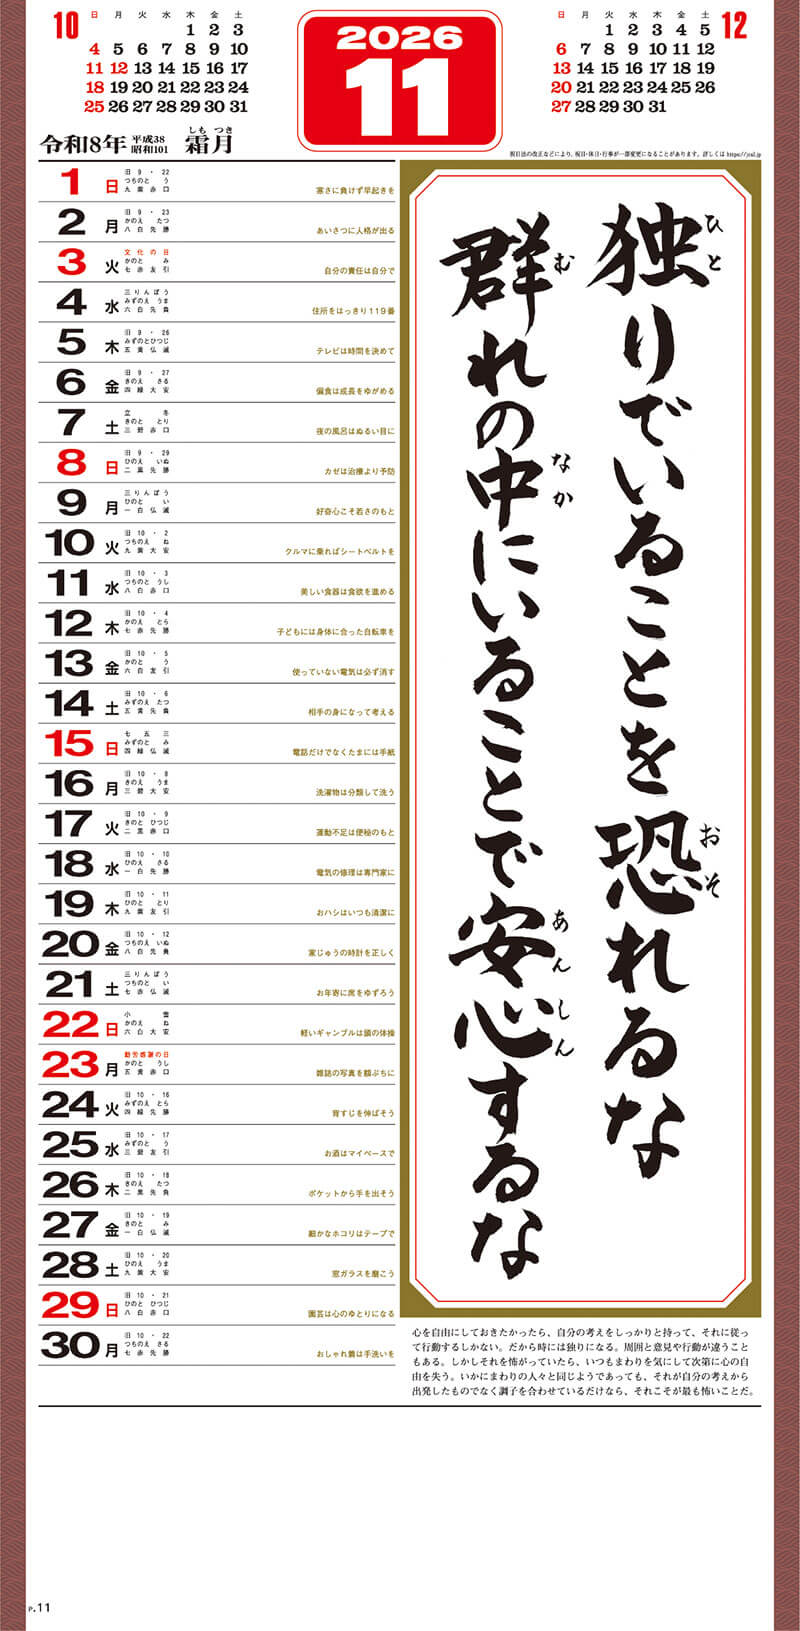 10
日 月 火 水 木 金 土
1 2 3
4 5 6 7 8 9 10
11 12 13 14 15 16 17
18 19 20 21 22 23 24
25 26 27 28 29 30 31
2026
11
日 月 火 水 木 金 土
12
1 2 3 4 5
6 7 8 9 10 11 12
13 14 15 16 17 18 19
20 21 22 23 24 25 26
27 28 29 30 31
令和8年 平成38 昭和101 霜月
しも つき
祝日法の改正などにより、祝日・休日・行事が一部変更になることがあります。詳しくは https://jcal.jp
1 日 旧 9 ・ 22 つちのと う 九紫赤口 寒さに負けず早起きを
2 月 旧 9 ・ 23 かのえ たつ 八白先勝 あいさつに人格が出る
3 火 文化の日 かのと み 七赤友引 自分の責任は自分で
4 水 三りんぼう みずのえ うま 六白先負 住所をはっきり119番
5 木 旧 9 ・ 26 みずのとひつじ 五黄仏滅 テレビは時間を決めて
6 金 旧 9 ・ 27 きのえ さる 四緑大安 偏食は成長をゆがめる
7 土 立冬 きのと とり 三碧赤口 夜の風呂はぬるい目に
8 日 旧 9 ・ 29 ひのえ いぬ 二黒先勝 カゼは治療より予防
9 月 三りんぼう ひのと い 一白仏滅 好奇心こそ若さのもと
10 火 旧 10 ・ 2 つちのえ ね 九紫大安 クルマに乗ればシートベルトを
11 水 旧 10 ・ 3 つちのと うし 八白赤口 美しい食器は食欲を進める
12 木 旧 10 ・ 4 かのえ とら 七赤先勝 子どもには身体に合った自転車を
13 金 旧 10 ・ 5 かのと う 六白友引 使っていない電気は必ず消す
14 土 旧 10 ・ 6 みずのえ たつ 五黄先負 相手の身になって考える
15 日 七五三 みずのと み 四緑仏滅 電話だけでなくたまには手紙
16 月 旧 10 ・ 8 きのえ うま 三碧大安 洗濯物は分類して洗う
17 火 旧 10 ・ 9 きのと ひつじ 二黒赤口 運動不足は便秘のもと
18 水 旧 10 ・ 10 ひのえ さる 一白先勝 電気の修理は専門家に
19 木 旧 10 ・ 11 ひのと とり 九紫友引 おハシはいつも清潔に
20 金 旧 10 ・ 12 つちのえ いぬ 八白先負 家じゅうの時計を正しく
21 土 三りんぼう つちのと い 七赤仏滅 お年寄に席をゆずろう
22 日 小雪 かのえ ね 六白大安 軽いギャンブルは頭の体操
23 月 勤労感謝の日 かのと うし 五黄赤口 雑誌の写真を額ぶちに
24 火 旧 10 ・ 16 みずのえ とら 四緑先勝 背すじを伸ばそう
25 水 旧 10 ・ 17 みずのと う 三碧友引 お酒はマイペースで
26 木 旧 10 ・ 18 きのえ たつ 二黒先負 ポケットから手を出そう
27 金 旧 10 ・ 19 きのと み 一白仏滅 細かなホコリはテープで
28 土 旧 10 ・ 20 ひのえ うま 九紫大安 窓ガラスを磨こう
29 日 旧 10 ・ 21 ひのと ひつじ 八白赤口 園芸は心のゆとりになる
30 月 旧 10 ・ 22 つちのえ さる 七赤先勝 おしゃれ着は手洗いを
独りでいることを恐れるな
ひと おそ
群れの中にいることで安心するな
む なか あんしん
心を自由にしておきたかったら、自分の考えをしっかりと持って、それに従っ
て行動するしかない。だから時には独りになる。周囲と意見や行動が違うこと
もある。しかしそれを怖がっていたら、いつもまわりを気にして次第に心の自
由を失う。いかにまわりの人々と同じようであっても、それが自分の考えから
出発したものでなく調子を合わせているだけなら、それこそが最も怖いことだ。
P.11